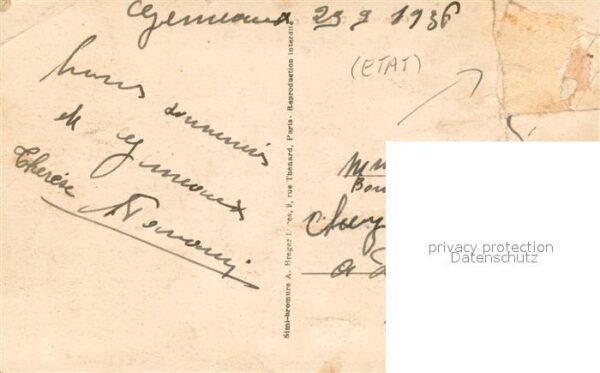 Gemeaux 29 9 1936
(ETAT)
bons souvenirs
de Gemeaux
Thérèse
Simi-bromure A. Breger Frères, 9, rue Thénard, Paris- Reproduction interdite
Mm
Bou
chez
a
privacy protection
Datenschutz